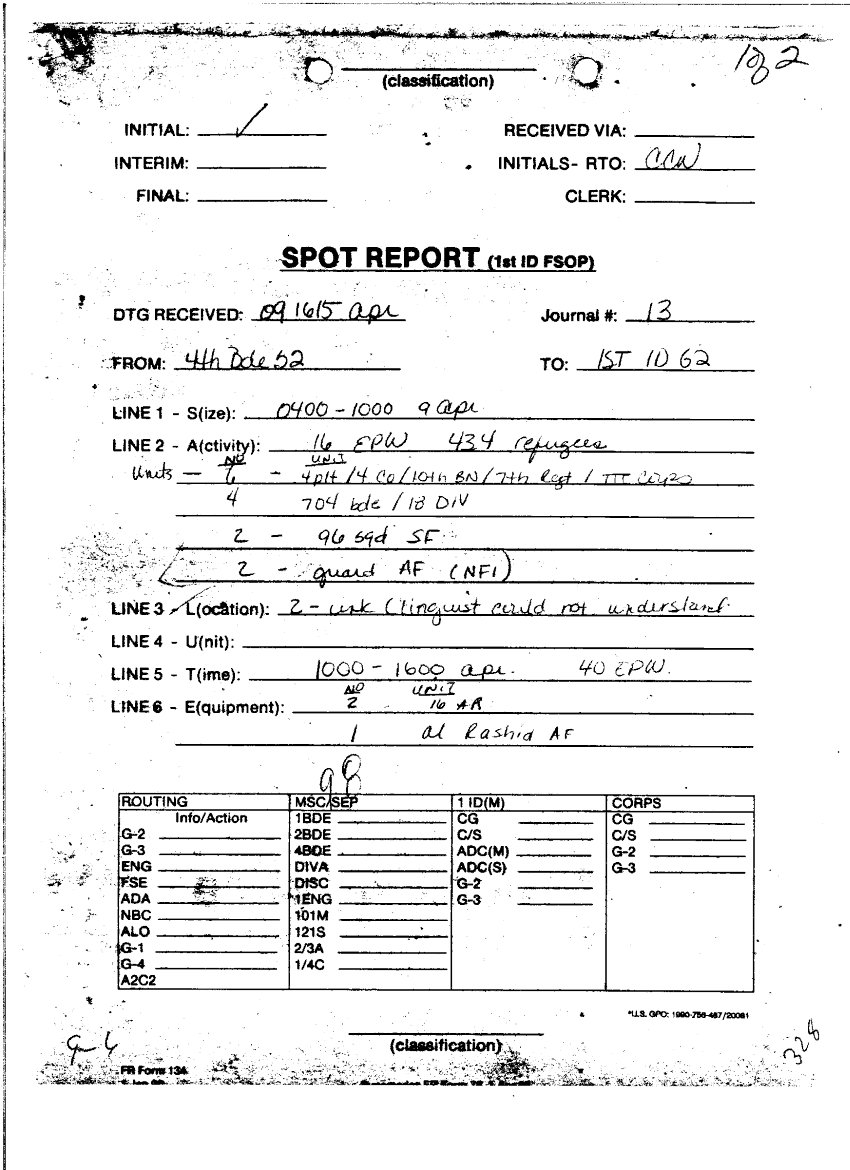 1 of 2
(classification)
INITIAL: ✓ RECEIVED VIA:
INTERIM: INITIALS- RTO: CCW
FINAL: CLERK:
SPOT REPORT (1st ID FSOP)
DTG RECEIVED: 091615 apr Journal #: 13
FROM: 4th Bde S2 TO: 1ST ID G2
LINE 1 - S(ize): 0400 - 1000 9 apr
LINE 2 - A(ctivity): 16 EPW 434 refugees
NO UNIT
Units — 6 - 4plt / 4 Co / 10th BN / 7th Regt / III Corps
4 704 bde / 18 DIV
2 - 96 sqd SF
2 - guard AF (NFI)
LINE 3 - L(ocation): 2 - unk (linguist could not understand
LINE 4 - U(nit):
LINE 5 - T(ime): 1000 - 1600 apr. 40 EPW.
NO UNIT
LINE 6 - E(quipment): 2 16 AR
1 al Rashid AF
98
ROUTING MSC/SEP 1 ID(M) CORPS
Info/Action 1BDE CG CG
G-2 2BDE C/S C/S
G-3 4BDE ADC(M) G-2
ENG DIVA ADC(S) G-3
FSE DISC G-2
ADA 1ENG G-3
NBC 101M
ALO 121S
G-1 2/3A
G-4 1/4C
A2C2
*U.S. GPO: 1990-756-467/20081
(classification)
328
FR Form 134